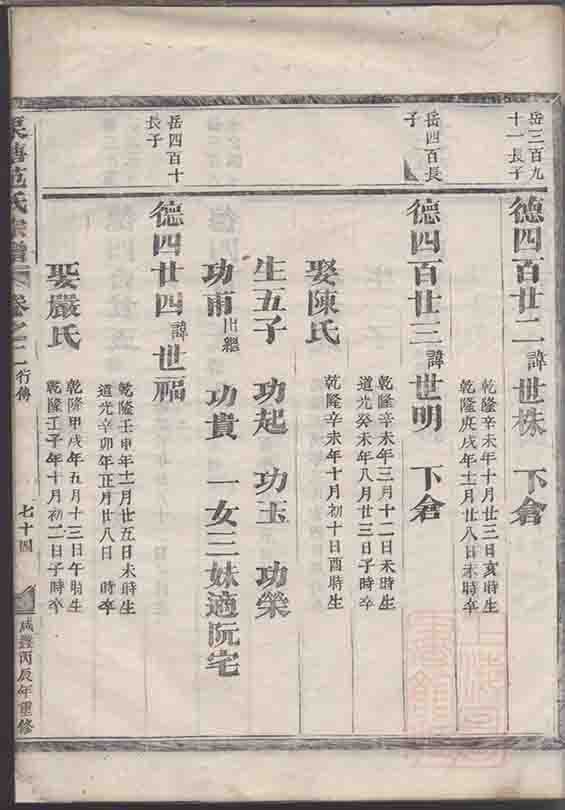 岳三百九
十一長子
德四百廿二諱世株 下倉
乾隆辛未年十月廿三日亥時生
乾隆庚戌年十二月廿八日未時卒
岳四百長
子
德四百廿三諱世明 下倉
乾隆辛未年三月十二日未時生
道光癸未年八月廿三日子時卒
娶陳氏
乾隆辛未年十月初十日酉時生
生五子 功起 功玉 功榮
功甫出繼 功貴 一女三妹適阮宅
岳四百十
長子
德四廿四諱世福
乾隆壬申年十二月廿五日未時生
道光辛卯年正月廿八日 時卒
娶嚴氏
乾隆甲戌年五月十三日午時生
乾隆壬子年十月初二日子時卒
范氏宗譜 卷之二 行傳 七十四 咸豐丙辰年重修